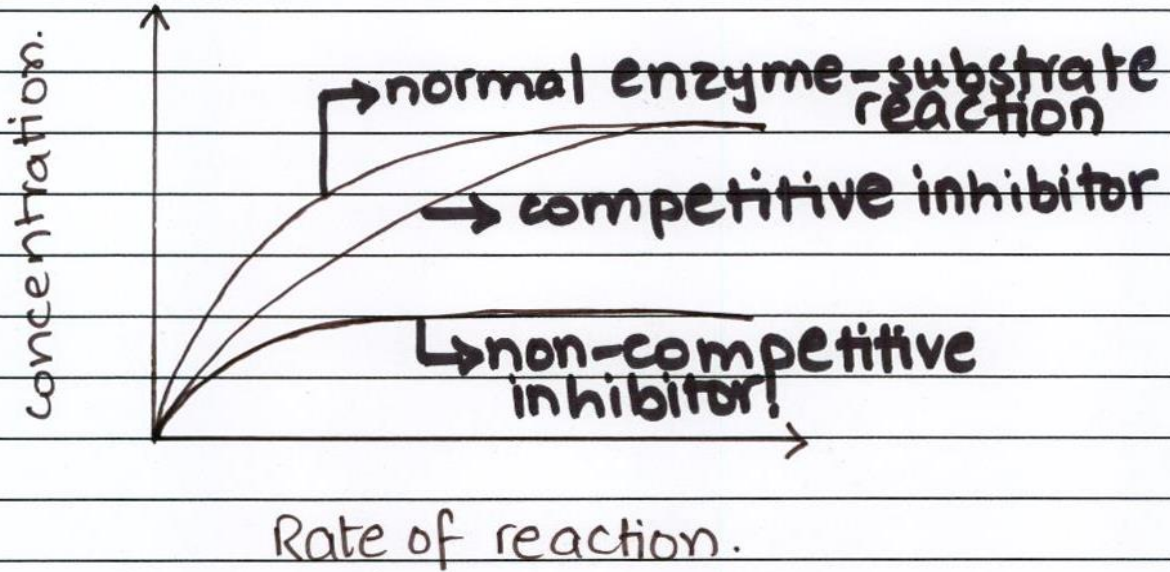 concentration.
normal enzyme-substrate
reaction
competitive inhibitor
non-competitive
inhibitor!
Rate of reaction.